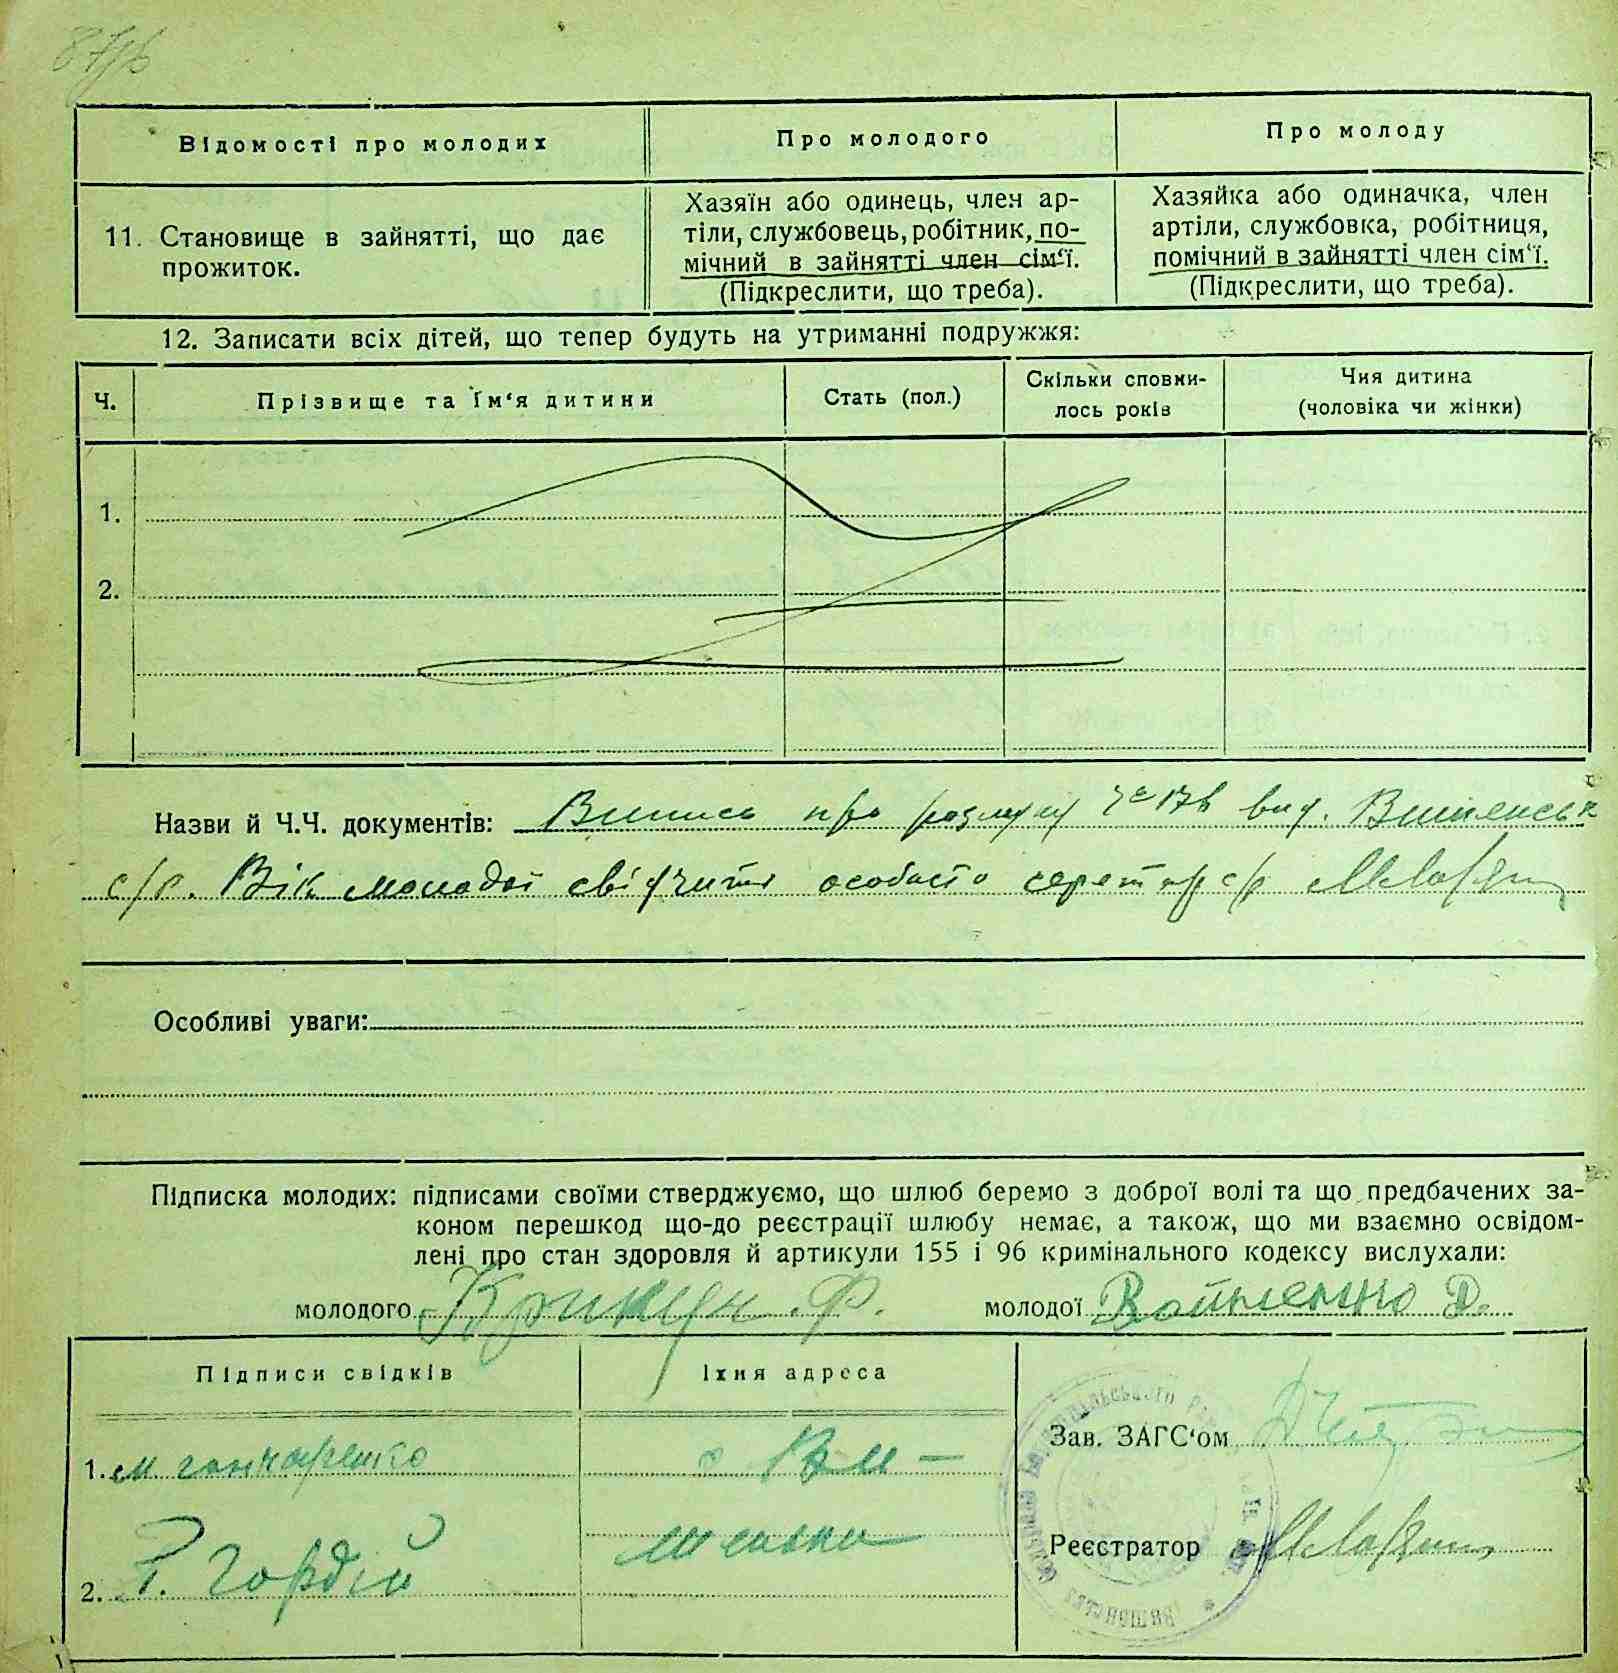 Відомості про молодих
Про молодого
Про молоду
11. Становище в зайнятті, що дає
прожиток.
Хазяїн або одинець, член ар-
тіли, службовець, робітник, по-
мічний в зайнятті член сім‘ї.
(Підкреслити, що треба).
Хазяйка або одиначка, член
артіли, службовка, робітниця,
помічний в зайнятті член сім‘ї.
(Підкреслити, що треба).
12. Записати всіх дітей, що тепер будуть на утриманні подружжя:
Ч.
Прізвище та їм‘я дитини
Стать (пол.)
Скільки сповни-
лось років
Чия дитина
(чоловіка чи жінки)
1.
2.
Назви й Ч.Ч. документів: Випись про вид.
с/р. Вік молодої особисто с/р
Особливі уваги:
Підписка молодих: підписами своїми стверджуємо, що шлюб беремо з доброї волі та що предбачених за-
коном перешкод що-до реєстрації шлюбу немає, а також, що ми взаємно освідом-
лені про стан здоровля й артикули 155 і 96 кримінального кодексу вислухали:
молодого Ф.
молодої Д.
Підписи свідків
Їхня адреса
1. М гончаренко
с
2. Гордій
Зав. ЗАГС‘ом
Реєстратор